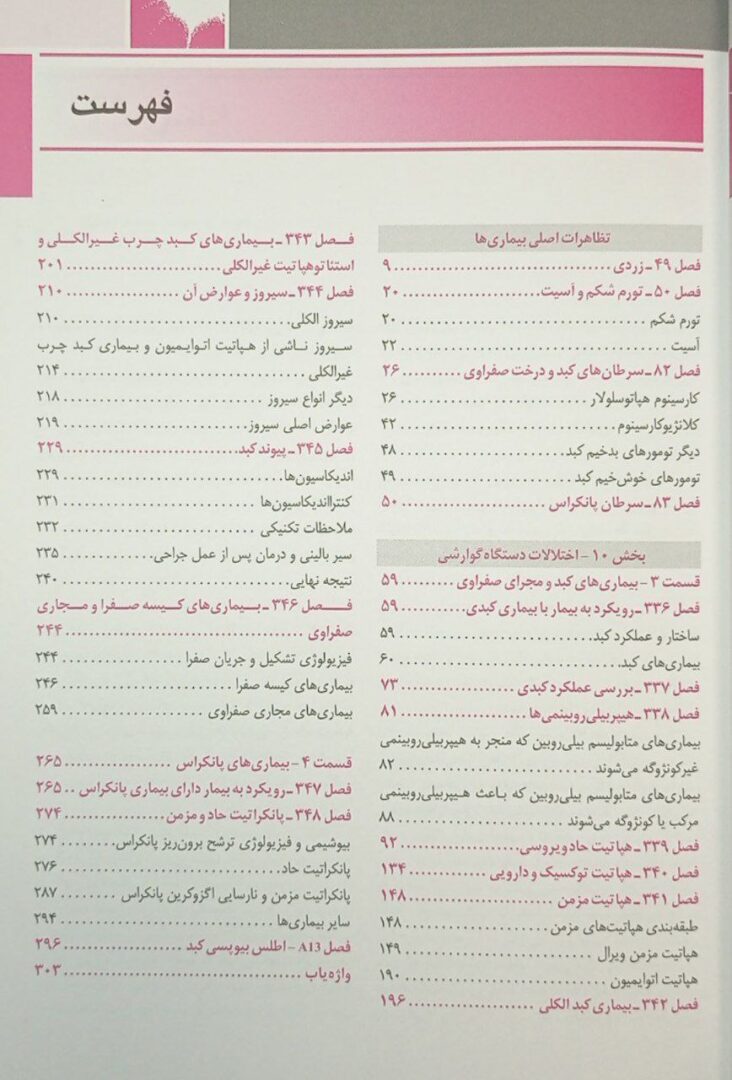 فهرست
تظاهرات اصلی بیماری‌ها
فصل ۴۹ـ زردی ................................ ۹
فصل ۵۰ـ تورم شکم و آسیت ...................... ۲۰
تورم شکم ................................ ۲۰
آسیت ................................ ۲۲
فصل ۸۲ـ سرطان‌های کبد و درخت صفراوی .......... ۲۶
کارسینوم هپاتوسلولار ........................ ۲۶
کلانژیوکارسینوم ........................ ۴۲
دیگر تومورهای بدخیم کبد ........................ ۴۸
تومورهای خوش‌خیم کبد ........................ ۴۹
فصل ۸۳ـ سرطان پانکراس ........................ ۵۰
بخش ۱۰ - اختلالات دستگاه گوارشی
قسمت ۳ - بیماری‌های کبد و مجرای صفراوی .......... ۵۹
فصل ۳۳۶ـ رویکرد به بیمار با بیماری کبدی .......... ۵۹
ساختار و عملکرد کبد ........................ ۵۹
بیماری‌های کبد ........................ ۶۰
فصل ۳۳۷ـ بررسی عملکرد کبدی .................. ۷۳
فصل ۳۳۸ـ هیپربیلی‌روبینمی‌ها .................. ۸۱
بیماری‌های متابولیسم بیلی‌روبین که منجر به هیپربیلی‌روبینمی
غیرکونژوگه می‌شوند ........................ ۸۲
بیماری‌های متابولیسم بیلی‌روبین که باعث هیپربیلی‌روبینمی
مرکب یا کونژوگه می‌شوند ........................ ۸۸
فصل ۳۳۹ـ هپاتیت حاد ویروسی .................. ۹۲
فصل ۳۴۰ـ هپاتیت توکسیک و دارویی .............. ۱۳۴
فصل ۳۴۱ـ هپاتیت مزمن ........................ ۱۴۸
طبقه‌بندی هپاتیت‌های مزمن .................... ۱۴۸
هپاتیت مزمن ویرال ........................ ۱۴۹
هپاتیت اتوایمیون ........................ ۱۹۰
فصل ۳۴۲ـ بیماری کبد الکلی .................... ۱۹۶
فصل ۳۴۳ـ بیماری‌های کبد چرب غیرالکلی و
استئاتوهپاتیت غیرالکلی ........................ ۲۰۱
فصل ۳۴۴ـ سیروز و عوارض آن .................. ۲۱۰
سیروز الکلی ................................ ۲۱۰
سیروز ناشی از هپاتیت اتوایمیون و بیماری کبد چرب
غیرالکلی ................................ ۲۱۴
دیگر انواع سیروز ........................ ۲۱۸
عوارض اصلی سیروز ........................ ۲۱۹
فصل ۳۴۵ـ پیوند کبد ........................ ۲۲۹
اندیکاسیون‌ها ........................ ۲۲۹
کنترااندیکاسیون‌ها ........................ ۲۳۱
ملاحظات تکنیکی ........................ ۲۳۲
سیر بالینی و درمان پس از عمل جراحی ............ ۲۳۵
نتیجه نهایی ................................ ۲۴۰
فصل ۳۴۶ـ بیماری‌های کیسه صفرا و مجاری
صفراوی ................................ ۲۴۴
فیزیولوژی تشکیل و جریان صفرا .................. ۲۴۴
بیماری‌های کیسه صفرا ........................ ۲۴۶
بیماری‌های مجاری صفراوی .................... ۲۵۹
قسمت ۴ - بیماری‌های پانکراس .................. ۲۶۵
فصل ۳۴۷ـ رویکرد به بیمار دارای بیماری پانکراس .. ۲۶۵
فصل ۳۴۸ـ پانکراتیت حاد و مزمن ................ ۲۷۴
بیوشیمی و فیزیولوژی ترشح برون‌ریز پانکراس ........ ۲۷۴
پانکراتیت حاد ........................ ۲۷۶
پانکراتیت مزمن و نارسایی اگزوکرین پانکراس ........ ۲۸۷
سایر بیماری‌ها ........................ ۲۹۴
فصل A13 - اطلس بیوپسی کبد .................. ۲۹۶
واژه‌یاب ................................ ۳۰۳